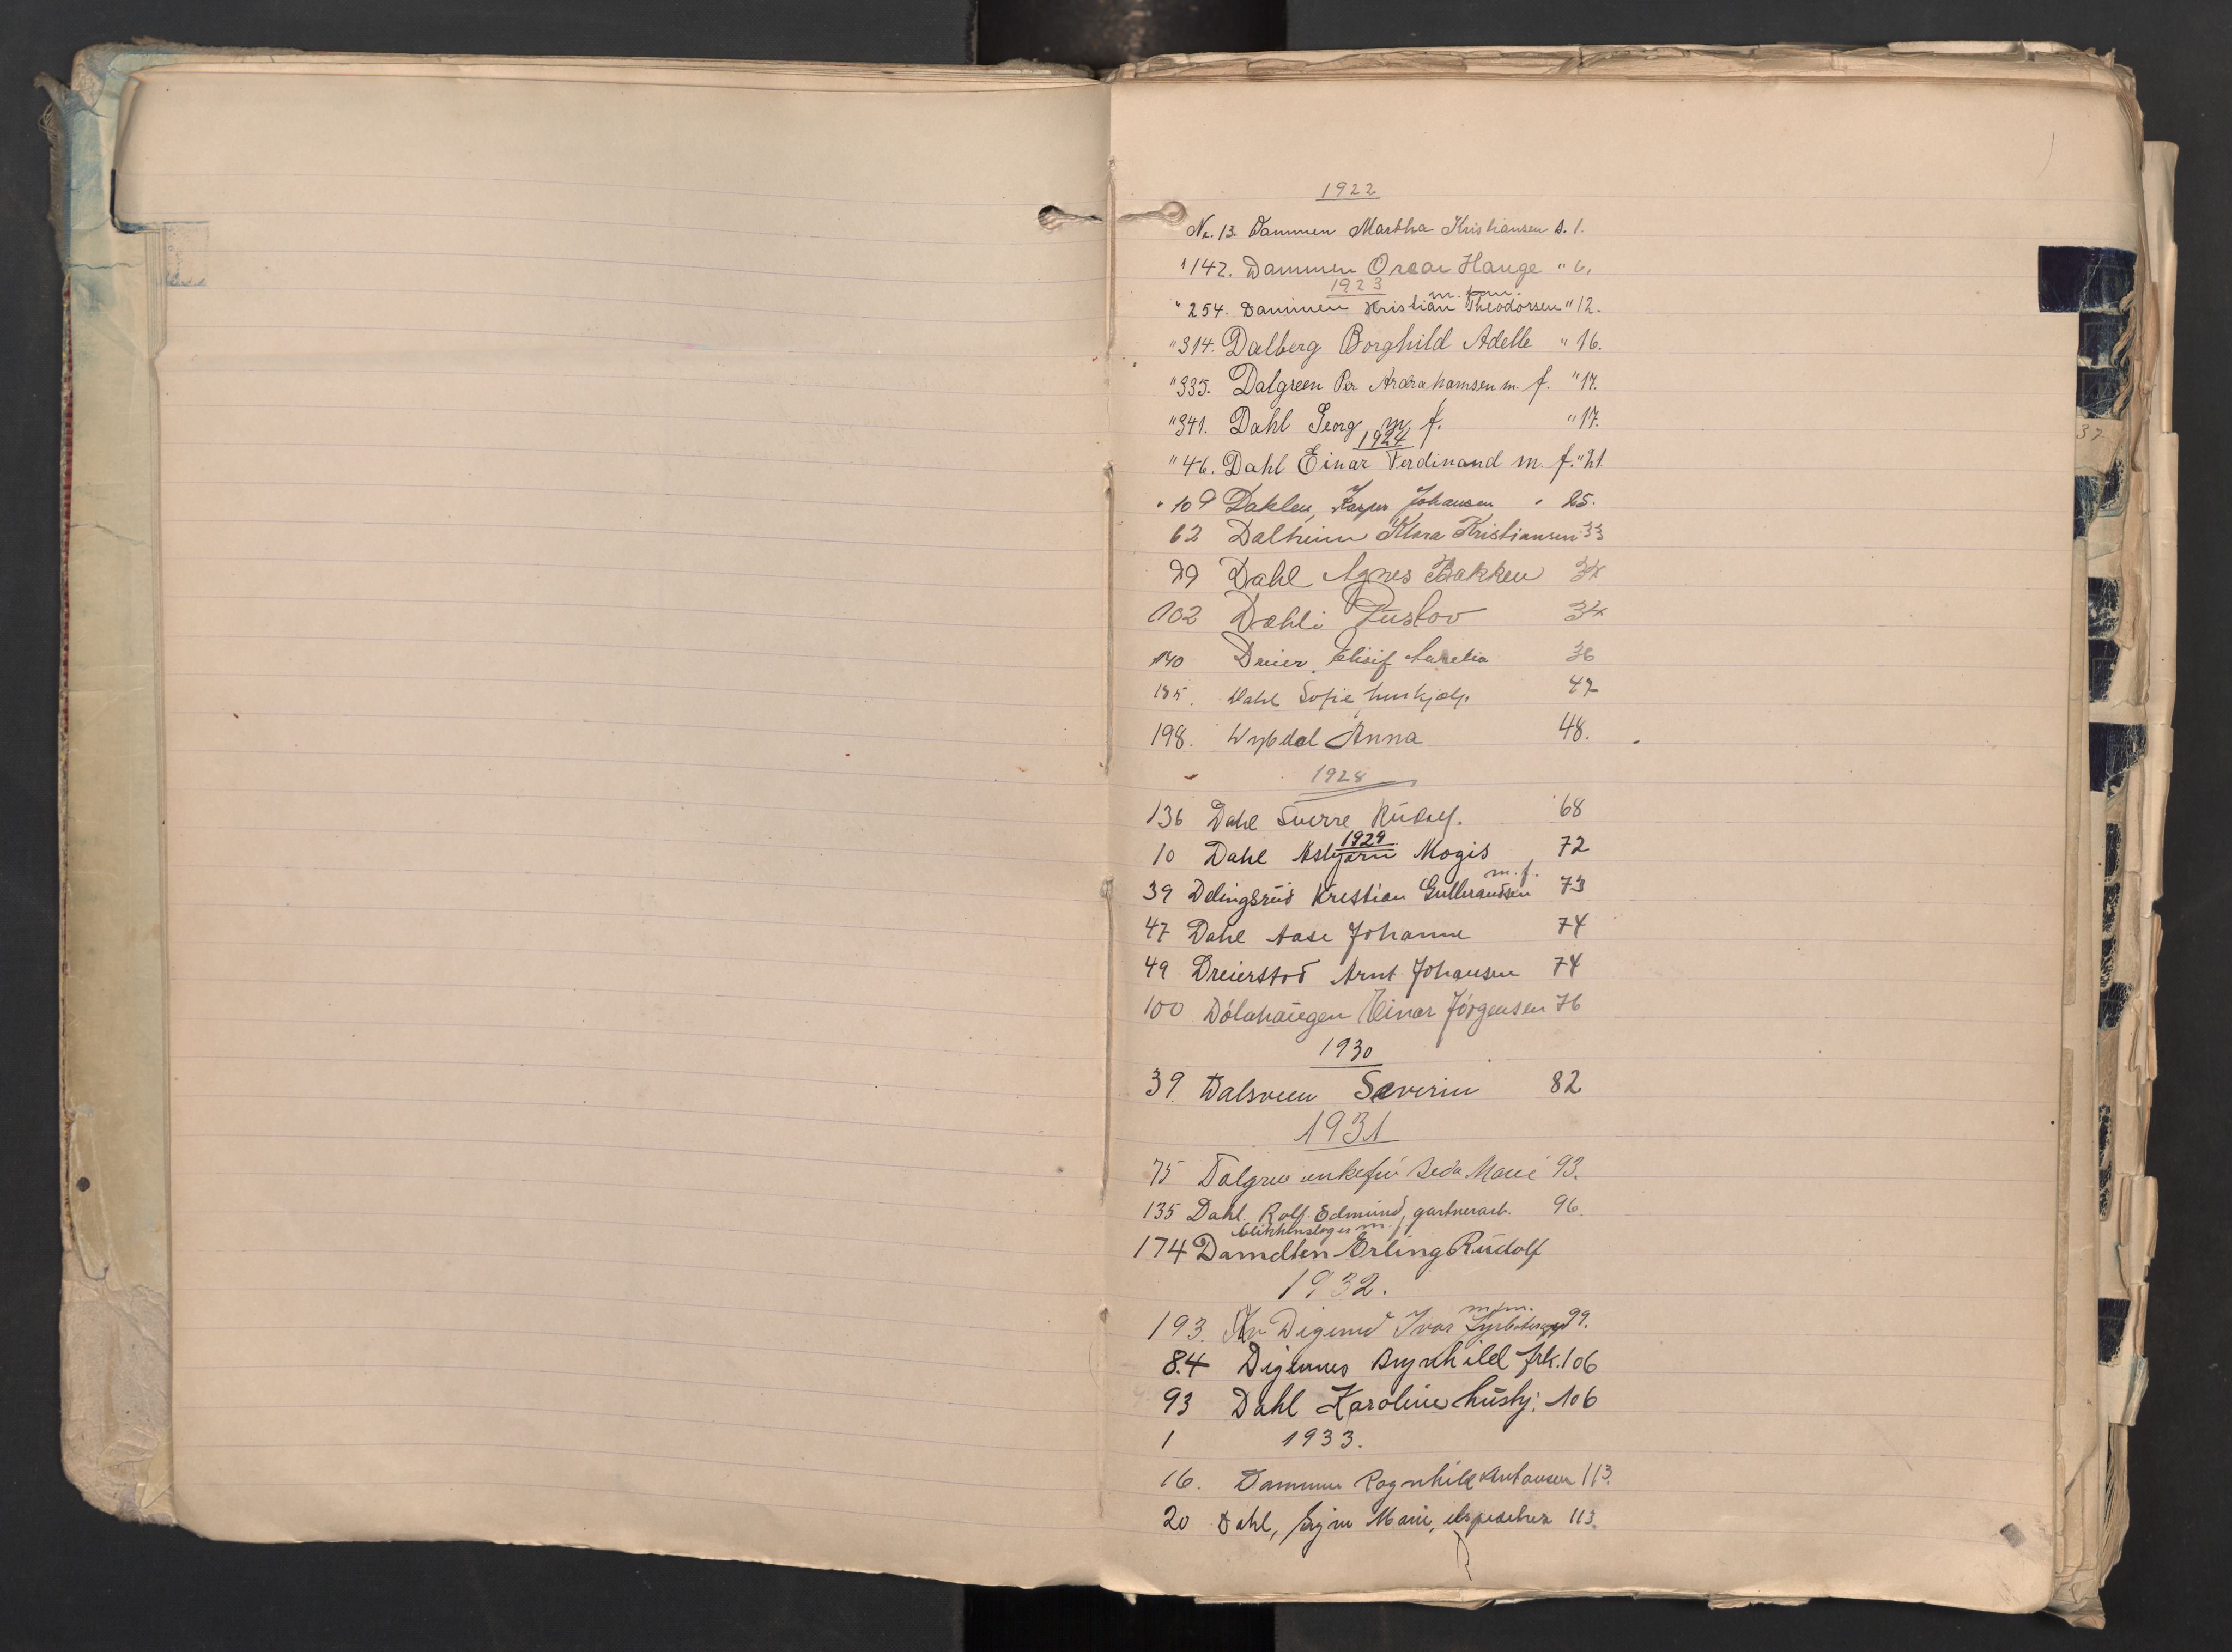 1922
Nr. 13. Dammen Martha Kristiansen s. 1.
" 142. Dammen Oscar Hauge " 6.
1923
m. fam.
" 254. Dammen Kristian Theodorsen " 12.
" 314. Dalberg Borghild Adelle " 16.
" 335. Dalgreen Per Abrahamsen m. f. " 17.
" 341. Dahl Georg m. f. " 17.
1924
" 46. Dahl Einar Ferdinand m. f. " 21
" 109 Dahlen, Kasper Johansen " 25.
62 Dalheim Klara Kristiansen 33
99 Dahl Agnes Bakken 34
102 Dæhli Gustav 34
140 Dreier, Elisif Aurelia 36
185. Dahl Sofie huskjælp. 47
198. Anna 48.
1928
136 Dahl Sverre Rudolf. 68
1929
10 Dahl Asbjørn Mogis 72
m. f.
39 Delingsrud Krestian Gulbrandsen 73
47 Dahl Aase Johanne 74
49 Dreierstod Arnt Johansen 74
100 Dölahaugen Einar Jörgensen 76
1930
39. Dalsveen Severin 82
1931
75 Dalgren enkefru Beda Marie 93.
135 Dahl Rolf Edmund, gartnerarb. 96.
blikkenslager m. f.
174 Damelten Erling Rudolf
1932.
m. fm.
193. Digerud Ivar 99.
84 Digernes Brynhild frk. 106
93 Dahl Karoline hushj. 106
1 1933.
16. Dammen Ragnhild Antonsen 113.
20 Dahl, Marie, 113.
37